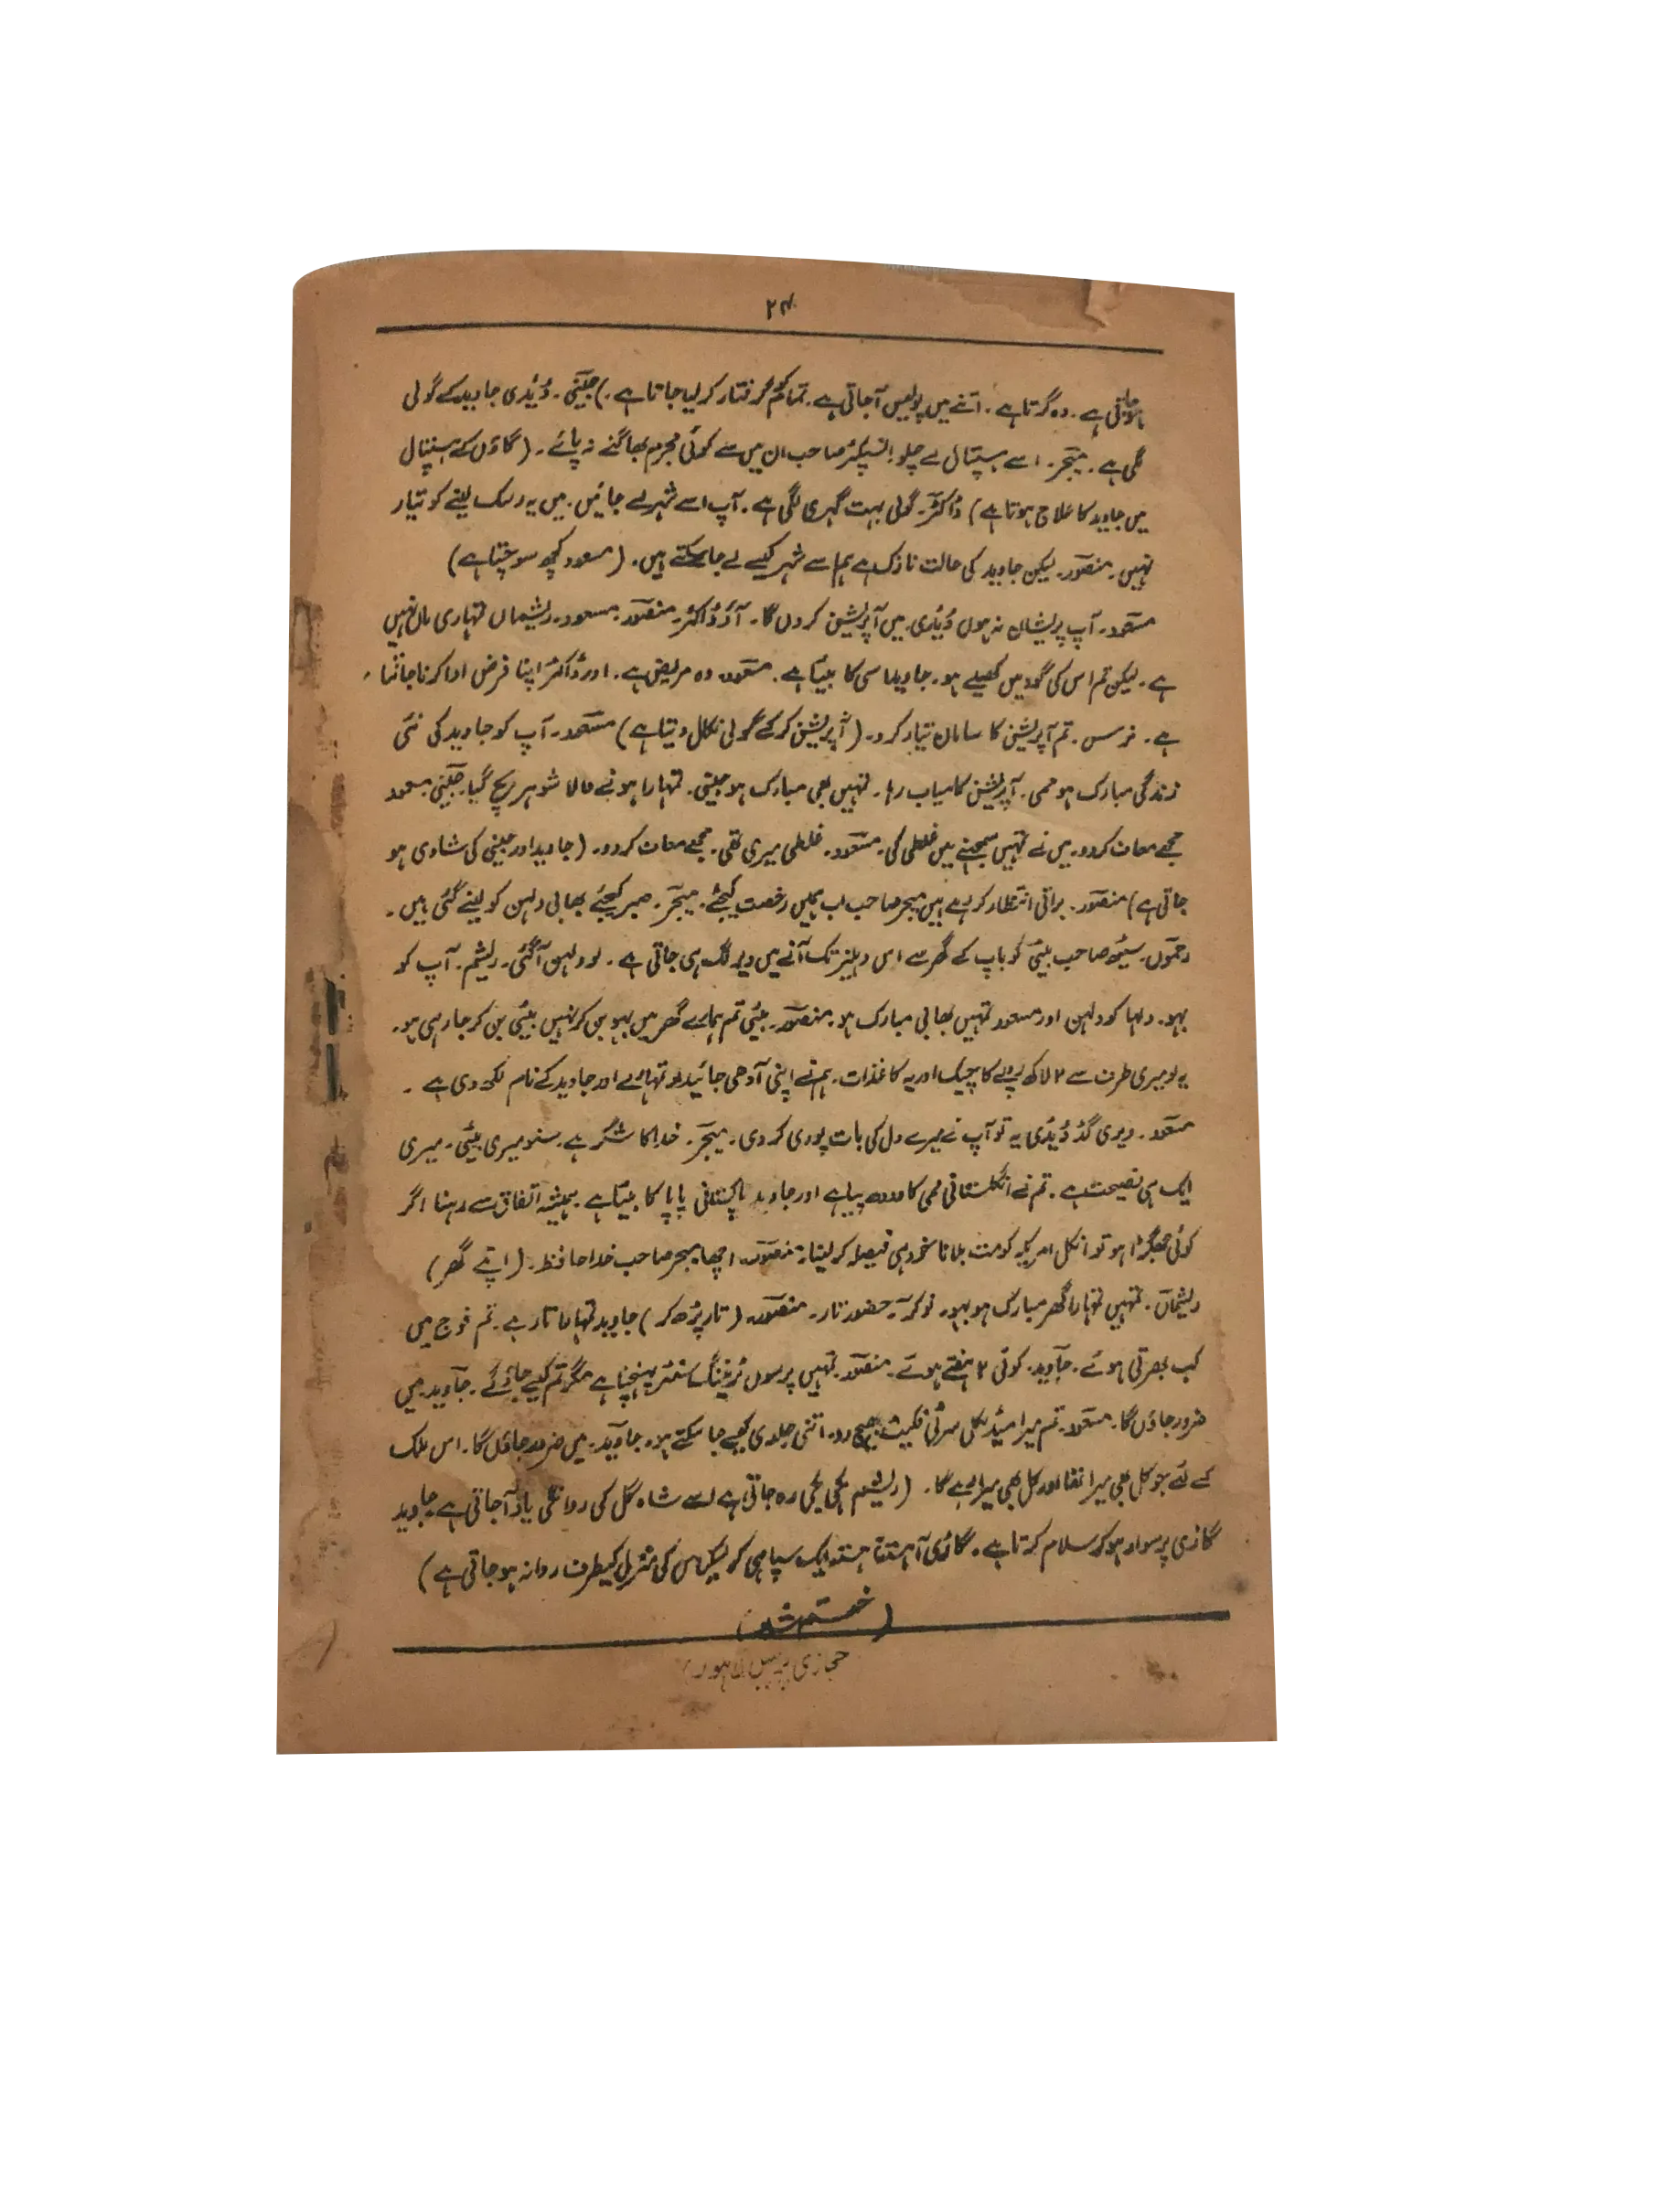 ۲۴
ہو جاتی ہے۔ وہ گرتا ہے۔ اتنے میں پولیس آ جاتی ہے۔ تمام کو گرفتار کر لیا جاتا ہے۔) جینی۔ ڈیڈی جاوید کے گولی
لگی ہے۔ میجر۔ اسے ہسپتال لے چلو انسپکٹر صاحب ان میں سے کوئی مجرم بھاگنے نہ پائے۔ (گاؤں کے ہسپتال
میں جاوید کا علاج ہوتا ہے) ڈاکٹر۔ گولی بہت گہری لگی ہے۔ آپ اسے شہر لے جائیں۔ میں یہ رسک لینے کو تیار
نہیں۔ منصور۔ لیکن جاوید کی حالت نازک ہے ہم اسے شہر کیسے لے جا سکتے ہیں۔ (مسعود کچھ سوچتا ہے)
مسعود۔ آپ پریشان نہ ہوں ڈیڈی۔ میں آپریشن کر دوں گا۔ آؤ ڈاکٹر۔ منصور۔ مسعود۔ ریشماں تمہاری ماں نہیں
ہے۔ لیکن تم اس کی گود میں کھیلے ہو۔ جاوید اسی کا بیٹا ہے۔ مسعود۔ وہ مریض ہے۔ اور ڈاکٹر اپنا فرض ادا کرنا جانتا
ہے۔ نرس۔ تم آپریشن کا سامان تیار کرو۔ (آپریشن کر کے گولی نکال دیتا ہے) مسعود۔ آپ کو جاوید کی نئی
زندگی مبارک ہو ممی۔ آپریشن کامیاب رہا۔ تمہیں بھی مبارک ہو جینی۔ تمہارا ہونے والا شوہر بچ گیا۔ جینی۔ مسعود
مجھے معاف کر دو۔ میں نے تمہیں سمجھنے میں غلطی کی۔ مسعود۔ غلطی میری تھی۔ مجھے معاف کر دو۔ (جاوید اور جینی کی شادی ہو
جاتی ہے) منصور۔ براتی انتظار کر رہے ہیں میجر صاحب اب ہمیں رخصت کیجئے۔ میجر۔ صبر کیجئے بھابی دلہن کو لینے گئی ہیں۔
رحموں۔ سیٹھ صاحب بیٹی کو باپ کے گھر سے اس دہلیز تک آنے میں دیر لگ ہی جاتی ہے۔ لو دلہن آ گئی۔ ریشم۔ آپ کو
بہو۔ دلہا کو دلہن اور مسعود تمہیں بھابی مبارک ہو۔ منصور۔ بیٹی تم ہمارے گھر میں بہو بن کر نہیں بیٹی بن کر جا رہی ہو۔
یہ لو میری طرف سے ۲ لاکھ روپے کا چیک اور یہ کاغذات۔ ہم نے اپنی آدھی جائیداد تمہارے اور جاوید کے نام لکھ دی ہے۔
مسعود۔ ویری گڈ ڈیڈی یہ تو آپ نے میرے دل کی بات پوری کر دی۔ میجر۔ خدا کا شکر ہے۔ سنو میری بیٹی۔ میری
ایک ہی نصیحت ہے۔ تم نے انگلستانی ممی کا دودھ پیا ہے اور جاوید پاکستانی پاپا کا بیٹا ہے۔ ہمیشہ اتفاق سے رہنا اگر
کوئی جھگڑا ہو تو انکل امریکہ کو مت بلانا خود ہی فیصلہ کر لینا۔ منصور۔ اچھا میجر صاحب خدا حافظ۔ (اپنے گھر)
ریشماں۔ تمہیں تمہارا گھر مبارک ہو بہو۔ نوکر۔ حضور تار۔ منصور۔ (تار پڑھ کر) جاوید تمہارا تار ہے۔ تم فوج میں
کب بھرتی ہوئے۔ جاوید۔ کوئی ۲ ہفتے ہوئے۔ منصور۔ تمہیں پرسوں ٹریننگ سنٹر پہنچنا ہے مگر تم کیسے جاؤ گے۔ جاوید۔ میں
ضرور جاؤں گا۔ مسعود۔ تم میرا میڈیکل سرٹی فکیٹ بھیج دو۔ اتنی جلدی کیسے جا سکتے ہو۔ جاوید۔ میں ضرور جاؤں گا۔ اس ملک
کے لئے جو کل بھی میرا تھا اور کل بھی میرا رہے گا۔ (ریشم ہکی بکی رہ جاتی ہے اسے شاہ گل کی روانگی یاد آ جاتی ہے۔ جاوید
گاڑی پر سوار ہو کر سلام کرتا ہے۔ گاڑی آہستہ آہستہ ایک سپاہی کو لیکر اس کی منزل کیطرف روانہ ہو جاتی ہے)
(ختم شد)
حجازی پریس لاہور